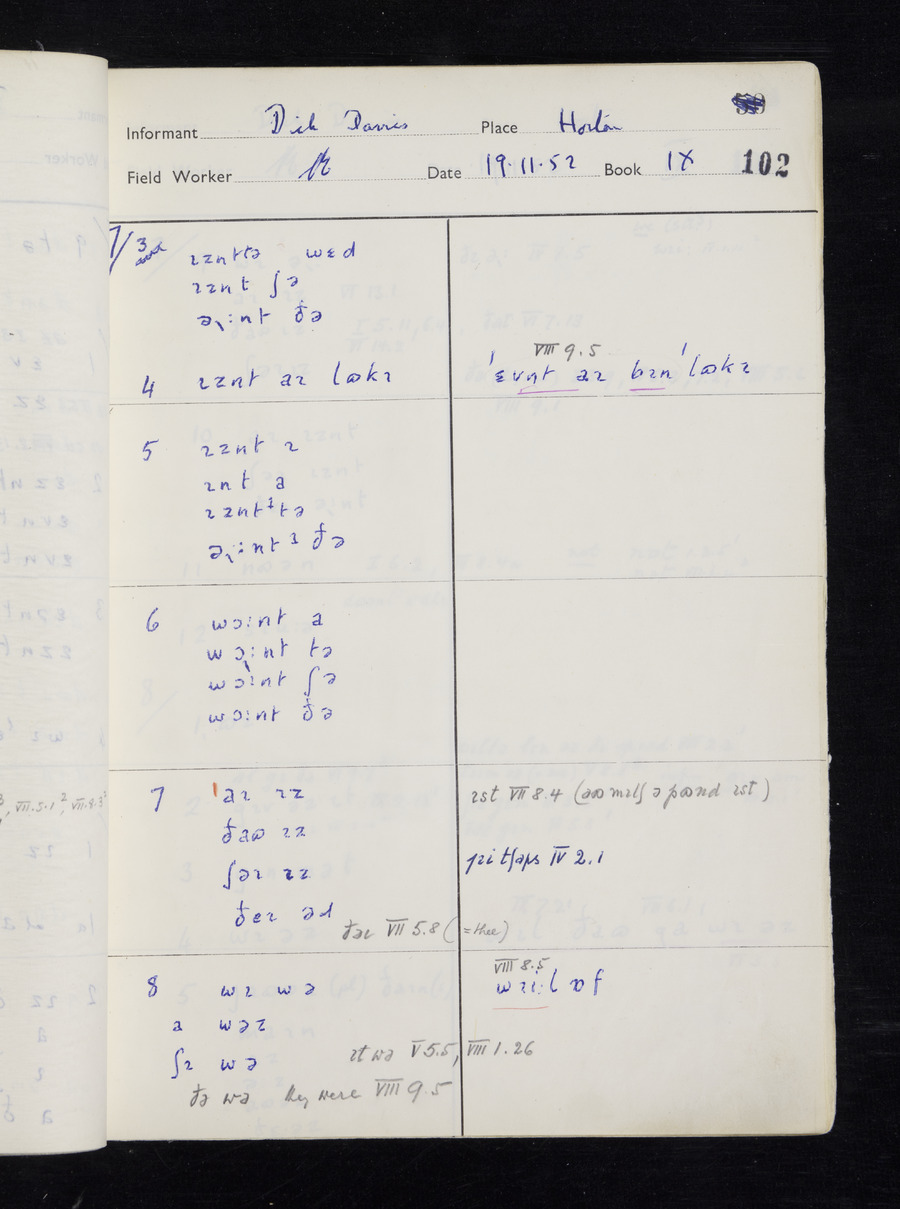 Informant Dick Davis Place Horton
Field Worker Date 19.11.52 Book IX 102
7/3 ɪznttə wɛd
ɪznt ʃə
əɪ:nt ðə
VIII 9.5
4 ɪznt aɪ lɷkɪ 'ɛvnt aɪ bɪn 'lɷkɪ
5 ɪznt ɪ
ɪnt a
ɪznt³tə
əɪ:nt³ ðə
6 wɔ:nt a
wɔ:nt tə
wɔ:nt ʃə
wɔ:nt ðə
7 'aɪ ɪz ɪst VII 8.4 (aɷ mɪlʃ ə pɷnd ɪst)
ðaɷ ɪz
ʃəɪ ɪz pɪitʃəps IV 2.1
ðeɪ əd
ðəɪ VII 5.8 (=thee)
VIII 8.5
8 wɪ wə wɪi:l ɒf
a wəz
ʃɪ wə ɪt wə V 5.5, VIII 1.26
ðə wə they were VIII 9.5